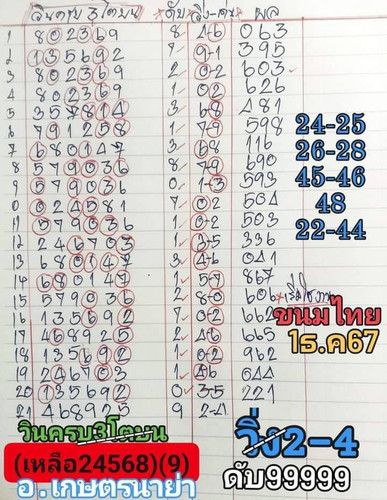 วินครบ 3 โตบน ดับ วิ่ง-เด่น ผล
1 802369 8 4-6 063
2 135692 7 9-1 395
3 802369 2 0-2 603
4 802369 1 0-2 626
5 357814 3 6-8 481
6 791258 1 7-9 598
7 680147 3 6-8 116
8 579036 8 7-9 690
9 579036 0 1-3 593
10 024581 7 0-2 504
11 579036 1 0-2 503
12 246703 1 3-5 336
13 680147 3 4-6 041
14 680147 1 5-7 867
15 579036 2 8-0 606
16 135692 7 0-2 662
17 468925 2 4-6 665
18 135692 1 0-2 962
19 246703 1 4-6 044
20 135692 0 3-5 221
21 468925 9 2-4
24-25
26-28
45-46
48
22-44
ขนมไทย
1ธ.ค67
วินครบ3โตบน
(เหลือ24568)(9)
อ.เกษตรนาย่า
วิ่ง2-4
ดับ99999